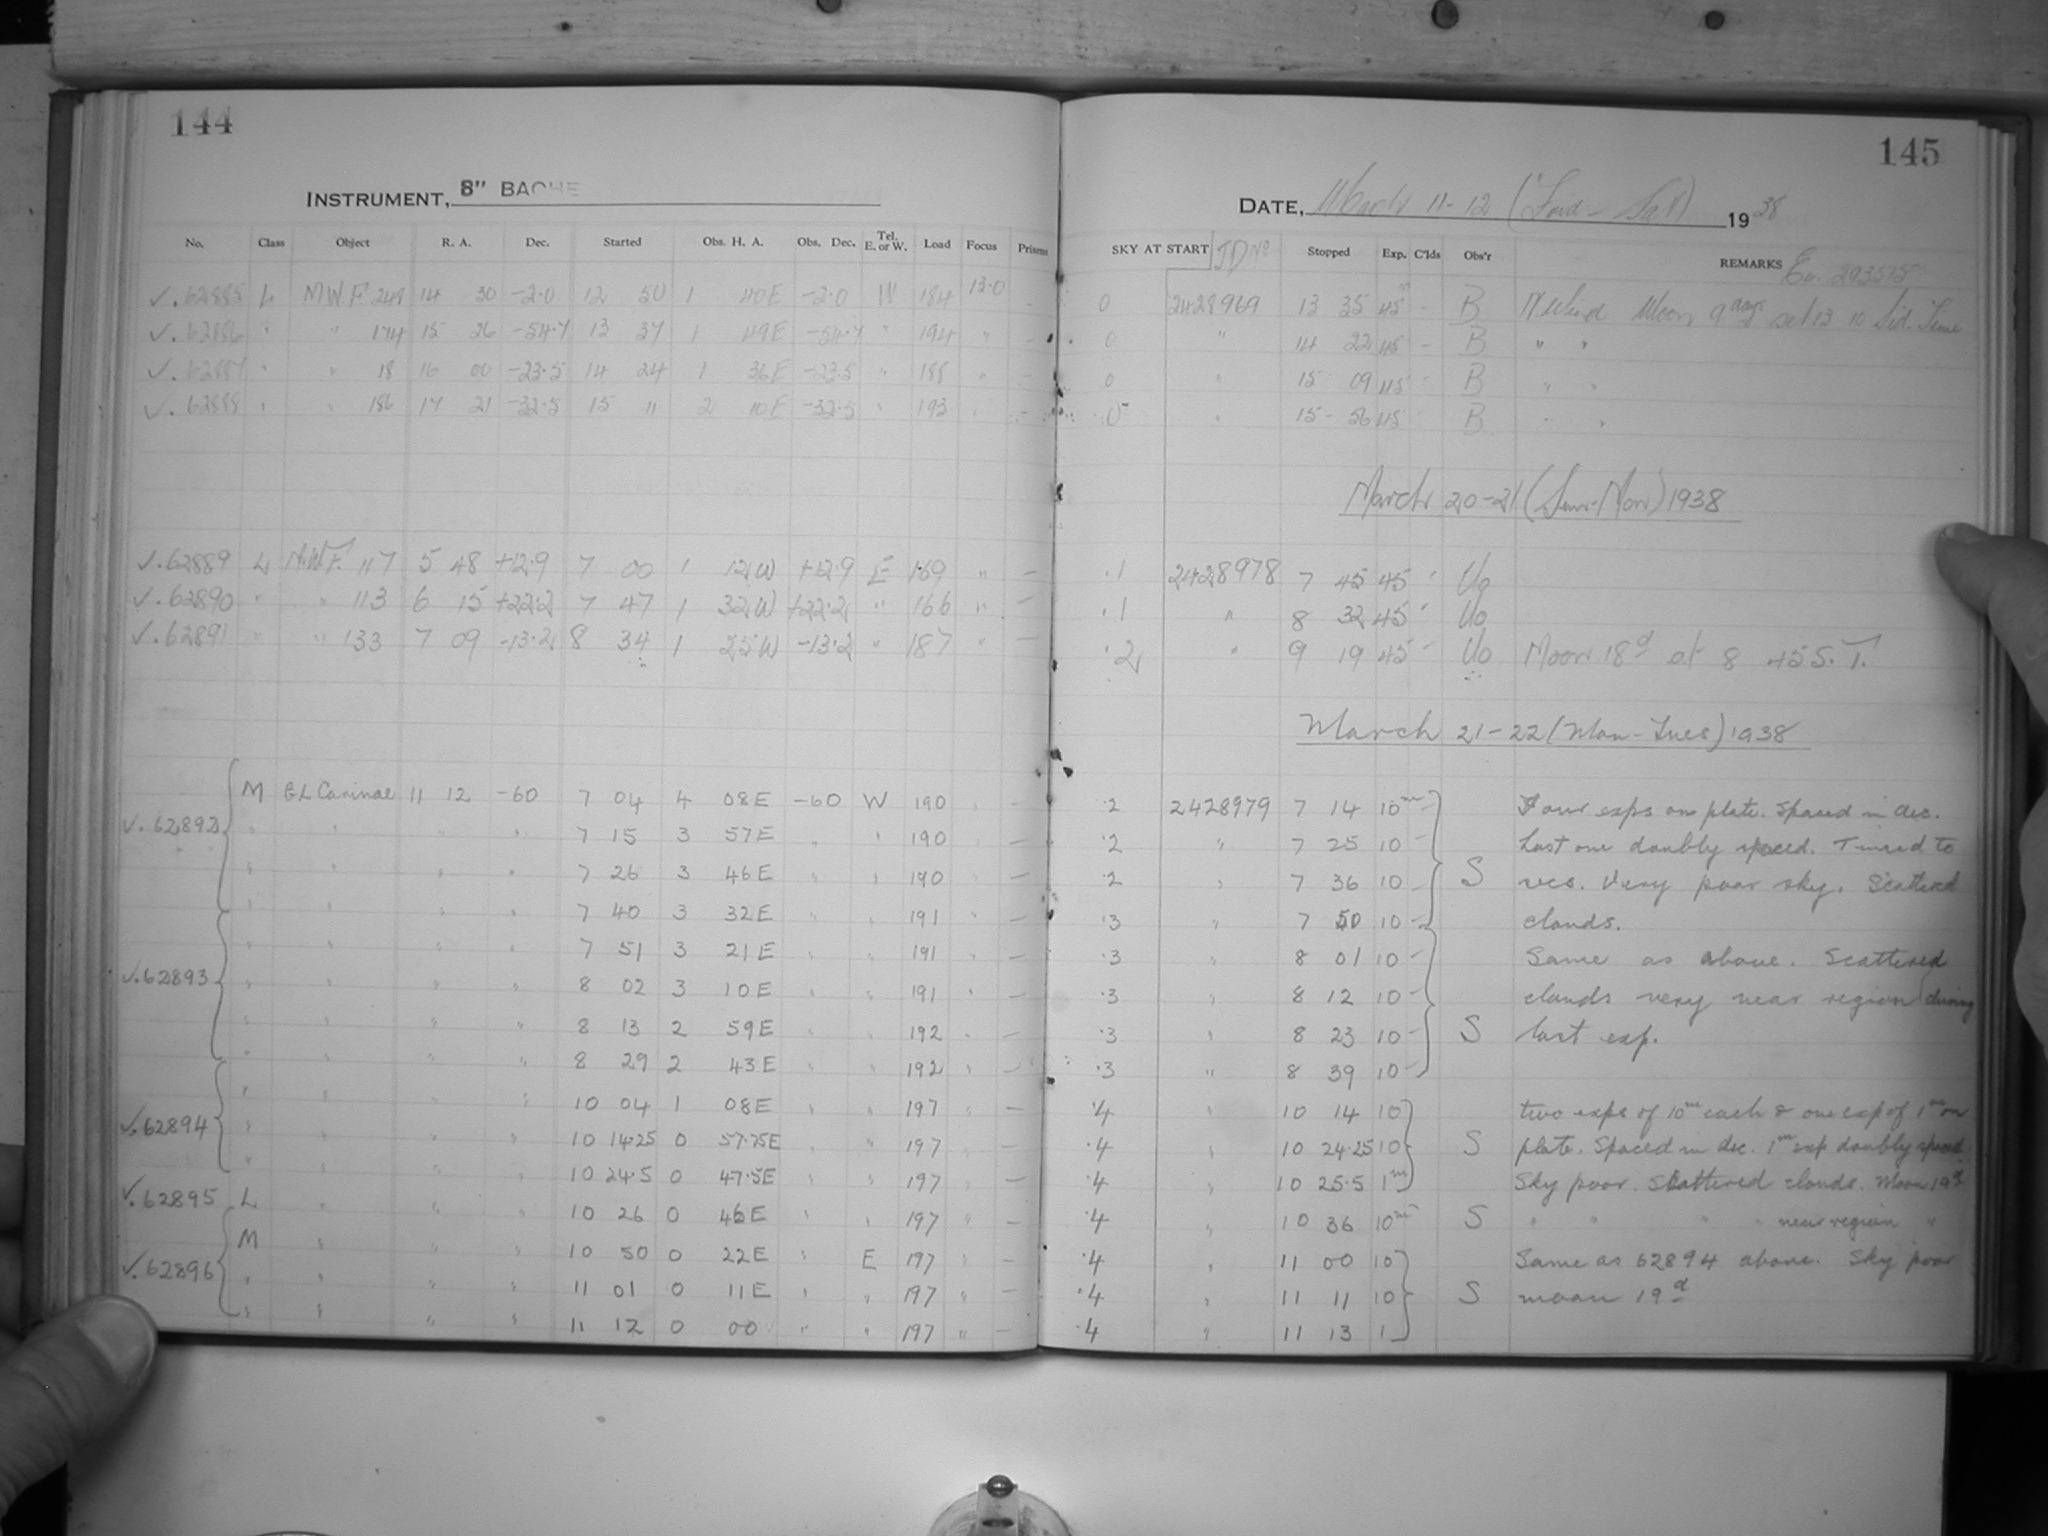 144
INSTRUMENT, 8" BACHE
No. Class Object R. A. Dec. Started Obs. H. A. Obs. Dec. Tel. E. or W. Load Focus Prisms
✓. 62885 L M.W.F. 248 14 30 -2.0 12 50 1 40E -2.0 W 184 13.0 -
✓. 62886 " " 174 15 26 -54.7 13 37 1 49E -54.7 " 194 " -
✓. 62887 " " 18 16 00 -23.5 14 24 1 36E -23.5 " 188 " -
✓. 62888 " " 186 17 21 -32.5 15 11 2 10E -32.5 " 193
✓. 62889 L M.W.F. 117 5 48 +12.9 7 00 1 12W +12.9 E 169 " -
✓. 62890 " " 113 6 15 +22.2 7 47 1 32W +22.2 " 166 " -
✓. 62891 " " 133 7 09 -13.2 8 34 1 25W -13.2 " 187 " -
✓. 62892 M GL Carinae 11 12 -60 7 04 4 08E -60 W 190 " -
" " " " 7 15 3 57E " " 190 -
" " " " 7 26 3 46E " " 190 " -
" " " " 7 40 3 32E " " 191 " -
✓. 62893 " " " " 7 51 3 21E " " 191 " -
" " " " 8 02 3 10E " " 191 " -
" " " " 8 13 2 59E " " 192 " -
" " " " 8 29 2 43E " " 192 " -
✓. 62894 " " " " 10 04 1 08E " " 197 " -
" " " " 10 14.25 0 57.75E " " 197 " -
" " " " 10 24.5 0 47.5E " " 197 " -
✓. 62895 L " " " 10 26 0 46E " " 197 " -
✓. 62896 M " " " 10 50 0 22E " E 197 " -
" " " " 11 01 0 11E " " 197 " -
" " " " 11 12 0 00 " " 197 " -
145
DATE, March 11-12 (Frid-Sat) 1938
SKY AT START JD No Stopped Exp. C'lds Obs'r REMARKS
0 2428969 13 35 45m - B Moon 9 days set 13 10 Sid. Time
0 " 14 22 45 - B " "
0 " 15 09 45 - B " "
0 " 15 56 45 - B " "
March 20-21 (Sun-Mon) 1938
.1 2428978 7 45 45 Uo
.1 " 8 32 45 Uo
.2 " 9 19 45 - Uo Moon 18d at 8 45 S.T.
March 21-22 (Mon-Tues) 1938
.2 2428979 7 14 10m - Four exps on plate. Spaced in dec.
.2 " 7 25 10 - Last one doubly spaced. Timed to
.2 " 7 36 10 - S secs. Very poor sky. Scattered
.3 " 7 50 10 - clouds.
.3 " 8 01 10 - Same as above. Scattered
.3 " 8 12 10 - clouds very near region during
.3 " 8 23 10 - S last exp.
.3 " 8 39 10 -
.4 " 10 14 10 two exps of 10m each & one exp of 1m on
.4 " 10 24.25 10 S plate. Spaced in dec. 1m exp doubly spaced.
.4 " 10 25.5 1m Sky poor. Scattered clouds. Moon 19d
.4 " 10 36 10m S " " " " near region "
.4 " 11 00 10 Same as 62894 above. Sky poor
.4 " 11 11 10 S moon 19d
.4 " 11 13 1